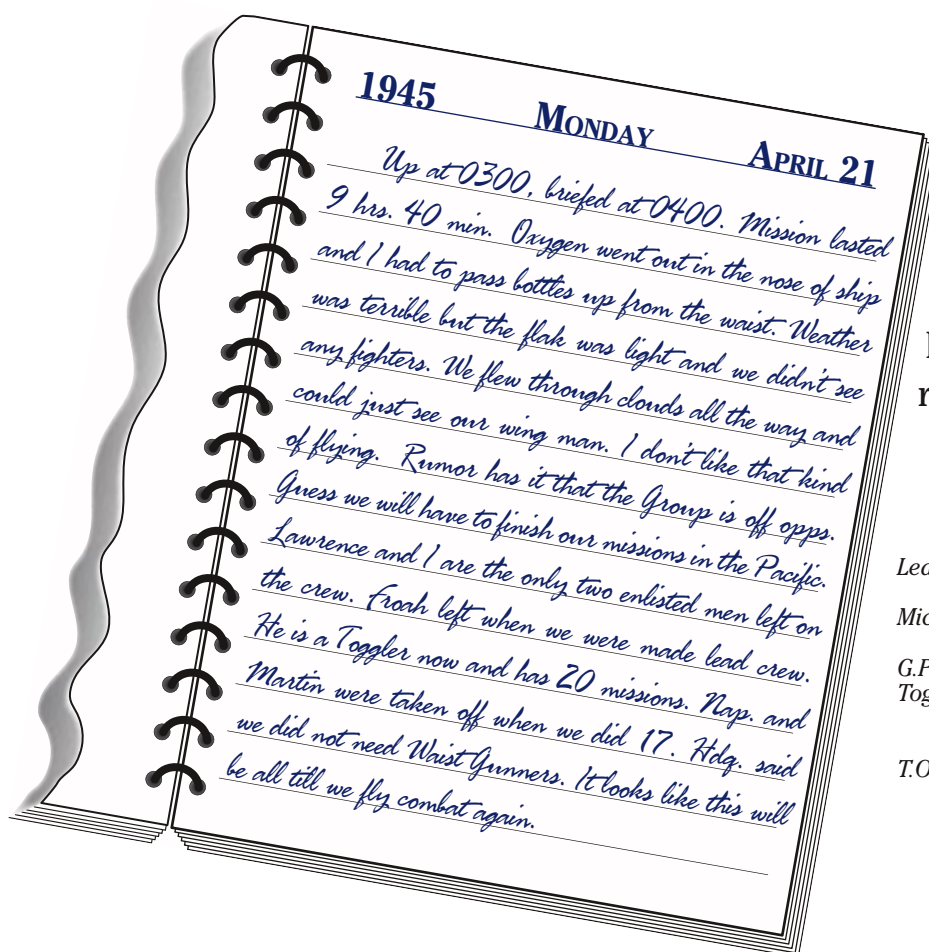 1945 MONDAY APRIL 21
Up at 0300, briefed at 0400. Mission lasted
9 hrs. 40 min. Oxygen went out in the nose of ship
and I had to pass bottles up from the waist. Weather
was terrible but the flak was light and we didn't see
any fighters. We flew through clouds all the way and
could just see our wing man. I don't like that kind
of flying. Rumor has it that the Group is off opps.
Guess we will have to finish our missions in the Pacific.
Lawrence and I are the only two enlisted men left on
the crew. Froah left when we were made lead crew.
He is a Toggler now and has 20 missions. Nap. and
Martin were taken off when we did 17. Hdq. said
we did not need Waist Gunners. It looks like this will
be all till we fly combat again.
r
Lea
Mic
G.P
Tog
T.O